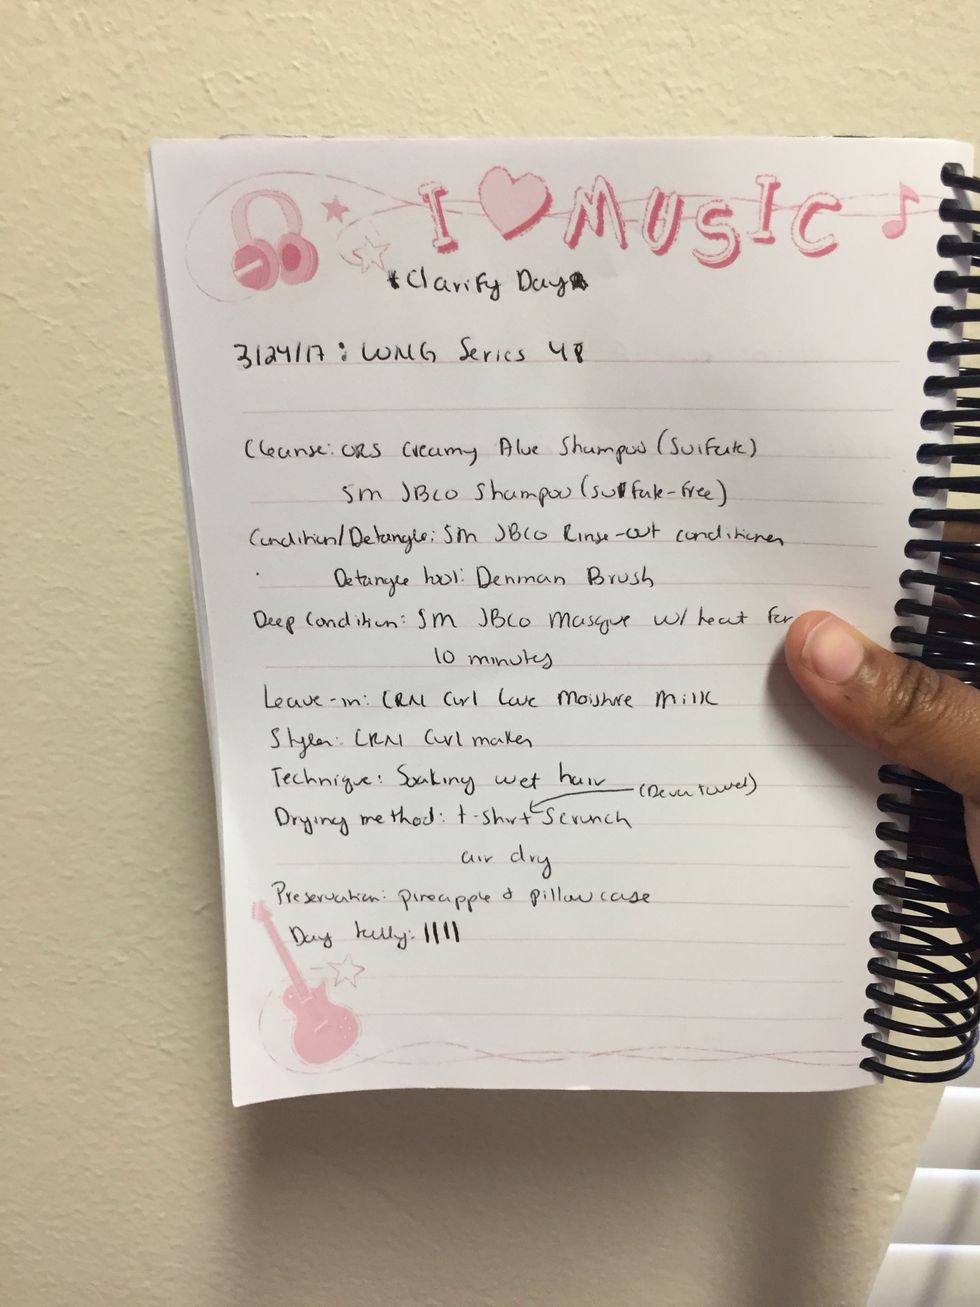 I ♥ MUSIC
*Clarify Day*
3/24/17: WNG Series 48
Cleanse: ORS Creamy Aloe Shampoo (Sulfate)
SM JBCO Shampoo (Sulfate-free)
Condition/Detangle: SM JBCO Rinse-out conditioner
Detangle tool: Denman Brush
Deep Condition: SM JBCO Masque w/ heat for
10 minutes
Leave-in: CRN Curl Love Moisture Milk
Styler: CRN Curl maker
Technique: Soaking wet hair
(Deva towel)
Drying method: t-shirt Scrunch
air dry
Preservation: pineapple & pillowcase
Day tally: ||||